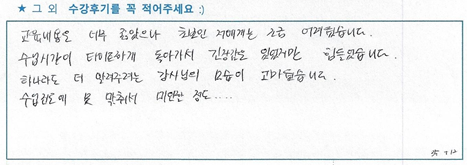 ★ 그 외 수강후기를 꼭 적어주세요 :)
교육내용은 너무 좋았으나 초보인 저에게는 조금 어려웠습니다.
수업시간이 타이트하게 돌아가서 긴장감은 있었지만 힘들었습니다.
하나라도 더 알려주려는 강사님의 모습이 고마웠습니다.
수업진도에 못 맞춰서 미안한 정도....